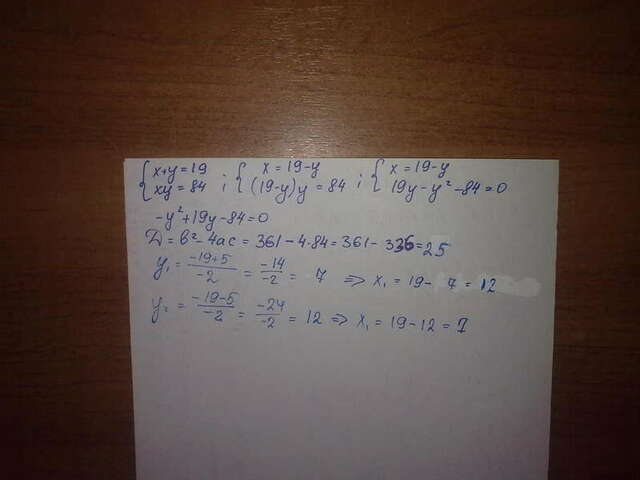 { x+y=19 ; { x=19-y ; { x=19-y
xy=84 (19-y)y=84 19y-y²-84=0
-y²+19y-84=0
D=b²-4ac=361-4·84=361-336=25
y₁=(-19+5)/-2=-14/-2=7 ⇒ x₁=19-7=12
y₂=(-19-5)/-2=-24/-2=12 ⇒ x₁=19-12=7